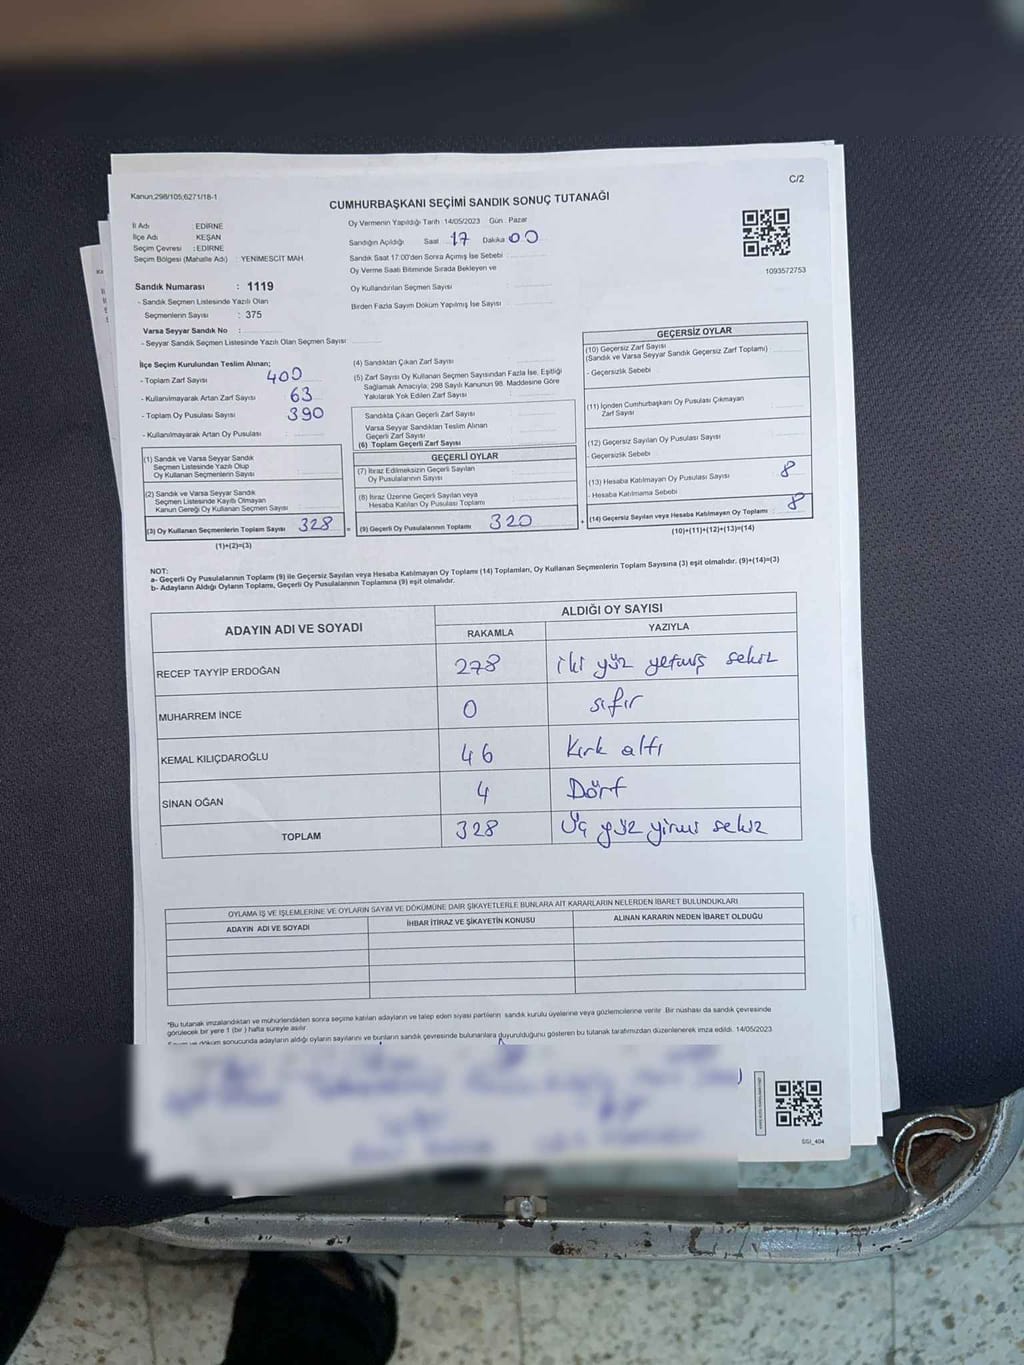 C/2
Kanun;298/105;6271/18-1
CUMHURBAŞKANI SEÇİMİ SANDIK SONUÇ TUTANAĞI
İl Adı : EDİRNE
İlçe Adı KEŞAN
Seçim Çevresi : EDİRNE
Seçim Bölgesi (Mahalle Adı) YENİMESCİT MAH.
Oy Vermenin Yapıldığı Tarih :14/05/2023 Gün : Pazar
Sandığın Açıldığı Saat 17 Dakika 00
Sandık Saat 17:00'den Sonra Açımış İse Sebebi :
Oy Verme Saati Bitiminde Sırada Bekleyen ve
Oy Kullandırılan Seçmen Sayısı :
Birden Fazla Sayım Döküm Yapılmış İse Sayısı :
1093572753
Sandık Numarası : 1119
- Sandık Seçmen Listesinde Yazılı Olan
Seçmenlerin Sayısı : 375
Varsa Seyyar Sandık No :
- Seyyar Sandık Seçmen Listesinde Yazılı Olan Seçmen Sayısı :
İlçe Seçim Kurulundan Teslim Alınan;
- Toplam Zarf Sayısı 400
- Kullanılmayarak Artan Zarf Sayısı 63
- Toplam Oy Pusulası Sayısı 390
- Kullanılmayarak Artan Oy Pusulası :
(1) Sandık ve Varsa Seyyar Sandık
Seçmen Listesinde Yazılı Olup
Oy Kullanan Seçmenlerin Sayısı :
(2) Sandık ve Varsa Seyyar Sandık
Seçmen Listesinde Kayıtlı Olmayan
Kanun Gereği Oy Kullanan Seçmen Sayısı :
(3) Oy Kullanan Seçmenlerin Toplam Sayısı 328 =
(1)+(2)=(3)
(4) Sandıktan Çıkan Zarf Sayısı :
(5) Zarf Sayısı Oy Kullanan Seçmen Sayısından Fazla İse, Eşitliği
Sağlamak Amacıyla; 298 Sayılı Kanunun 98. Maddesine Göre
Yakılarak Yok Edilen Zarf Sayısı :
Sandıkta Çıkan Geçerli Zarf Sayısı :
Varsa Seyyar Sandıktan Teslim Alınan
Geçerli Zarf Sayısı :
(6) Toplam Geçerli Zarf Sayısı
GEÇERLİ OYLAR
(7) İtiraz Edilmeksizin Geçerli Sayılan
Oy Pusulalarının Sayısı :
(8) İtiraz Üzerine Geçerli Sayılan veya
Hesaba Katılan Oy Pusulası Toplamı :
(9) Geçerli Oy Pusulalarının Toplamı 320 +
GEÇERSİZ OYLAR
(10) Geçersiz Zarf Sayısı
(Sandık ve Varsa Seyyar Sandık Geçersiz Zarf Toplamı)
- Geçersizlik Sebebi
(11) İçinden Cumhurbaşkanı Oy Pusulası Çıkmayan
Zarf Sayısı
(12) Geçersiz Sayılan Oy Pusulası Sayısı
- Geçersizlik Sebebi
(13) Hesaba Katılmayan Oy Pusulası Sayısı 8
- Hesaba Katılmama Sebebi
(14) Geçersiz Sayılan veya Hesaba Katılmayan Oy Toplamı : 8
(10)+(11)+(12)+(13)=(14)
NOT:
a- Geçerli Oy Pusulalarının Toplamı (9) ile Geçersiz Sayılan veya Hesaba Katılmayan Oy Toplamı (14) Toplamları, Oy Kullanan Seçmenlerin Toplam Sayısına (3) eşit olmalıdır. (9)+(14)=(3)
b- Adayların Aldığı Oyların Toplamı, Geçerli Oy Pusulalarının Toplamına (9) eşit olmalıdır.
ADAYIN ADI VE SOYADI ALDIĞI OY SAYISI
RAKAMLA YAZIYLA
RECEP TAYYİP ERDOĞAN 278 iki yüz yetmiş sekiz
MUHARREM İNCE 0 sıfır
KEMAL KILIÇDAROĞLU 46 Kırk altı
SİNAN OĞAN 4 Dört
TOPLAM 328 Üç yüz yirmi sekiz
OYLAMA İŞ VE İŞLEMLERİNE VE OYLARIN SAYIM VE DÖKÜMÜNE DAİR ŞİKAYETLERLE BUNLARA AİT KARARLARIN NELERDEN İBARET BULUNDUKLARI
ADAYIN ADI VE SOYADI İHBAR İTİRAZ VE ŞİKAYETİN KONUSU ALINAN KARARIN NEDEN İBARET OLDUĞU
*Bu tutanak imzalandıktan ve mühürlendikten sonra seçime katılan adayların ve talep eden siyasi partilerin sandık kurulu üyelerine veya gözlemcilerine verilir. Bir nüshası da sandık çevresinde
görülecek bir yere 1 (bir ) hafta süreyle asılır.
Sayım ve döküm sonucunda adayların aldığı oyların sayılarını ve bunların sandık çevresinde bulunanlara duyurulduğunu gösteren bu tutanak tarafımızdan düzenlenerek imza edildi. 14/05/2023
SGI_404